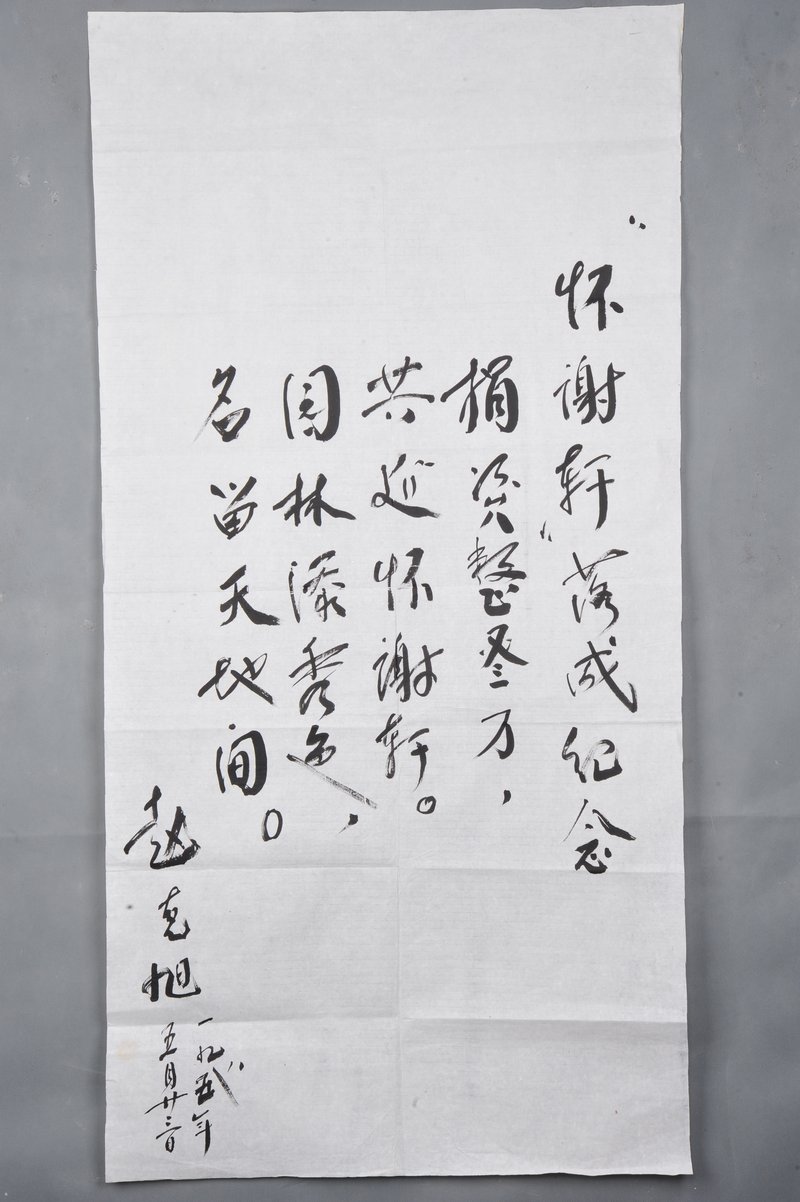 "怀谢轩"落成纪念
捐资整叁万，
共建怀谢轩。
园林添秀色，
名留天地间。
赵克旭
一九五年
五月廿三日